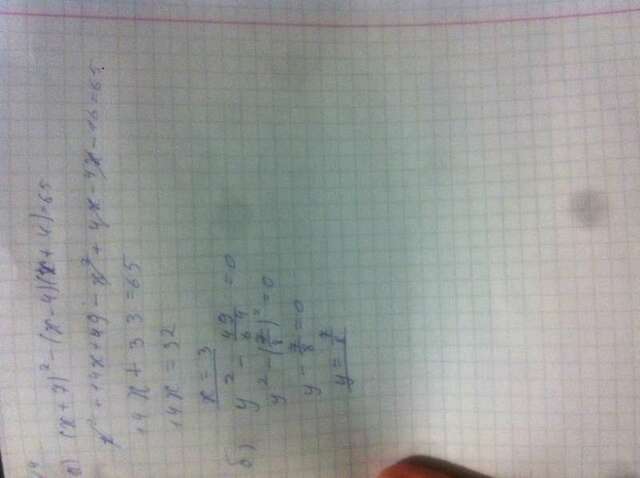 а) (x+7)² - (x-4)(x+4)=65
x² + 14x + 49 - x² + 4x - 4x - 16 = 65
14x + 33 = 65
14x = 32
x = 3
б) y² - 49/64 = 0
y² - (7/8)² = 0
y - 7/8 = 0
y = 7/8